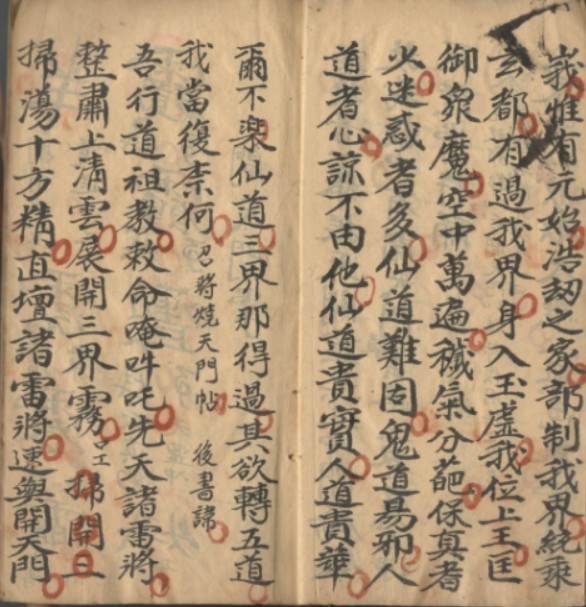 峩惟有元始浩劫之家部制我界統乘
玄都有過我界身入玉虛我位上王匡
御衆魔空中萬遍穢氣分葩保真者
火迷惑者多仙道難固鬼道易邪人
道者心諒不由他仙道貴實人道貴華
爾不楽仙道三界那得過其欲轉五道
我當復柰何 召將燒天門帖 後書諱
吾行道祖教敕命唵吽吒先天諸雷將
整肅上清雲展開三界霧 掃開三
掃蕩十方精直壇諸雷將速與開天門